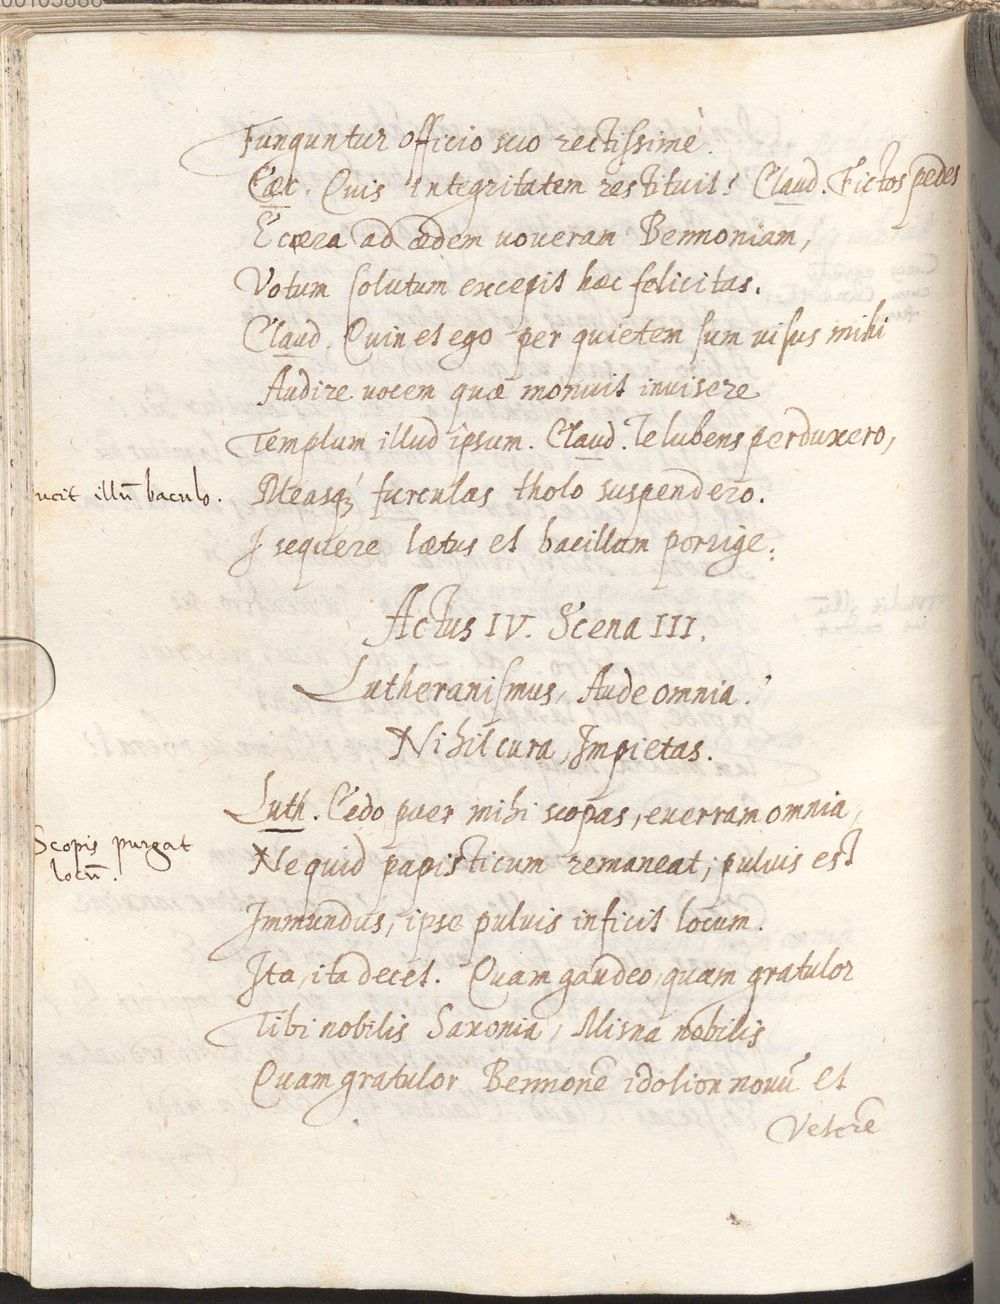 Funguntur officio suo rectissimè.
Cæc. Quis integritatem restituit? Claud. Fictos pedes
E cæra ad ædem uoueram Bennoniam,
Votum solutum excepit hæc felicitas.
Claud. Quin et ego per quietem sum uisus mihi
Audire uocem quæ monuit inuisere
Templum illud ipsum. Claud. Te lubens perduxero,
ucit illū baculo.
Measq́ furculas tholo suspendero.
I sequere lætus et bacillum porrige.
Actus IV. Scena III.
Lutheranismus, Aude omnia.
Nihil cura, Impietas.
Luth. Cedo puer mihi scopas, euerram omnia,
Scopis purgat
locū.
Ne quid papisticum remaneat; puluis est
Immundus, ipse puluis inficit locum.
Ita, ita decet. Quam gaudeo, quam gratulor
Tibi nobilis Saxonia, Misna nobilis
Quam gratulor Bennonē idolion nouū et
Veterē